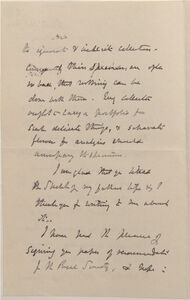 to ignorant &
of their specimens, are often
so bad, that nothing can be
done with them. Every collector
ought to carry a portfolio for
such delicate things, & separate
flowers for analysis should
accompany the specimens.
I am glad that you liked
the Sketch of my father's life by
and writing to me about
it.
I have had the pleasure of
signing your paper of recommendation
for the Royal Society, & hope